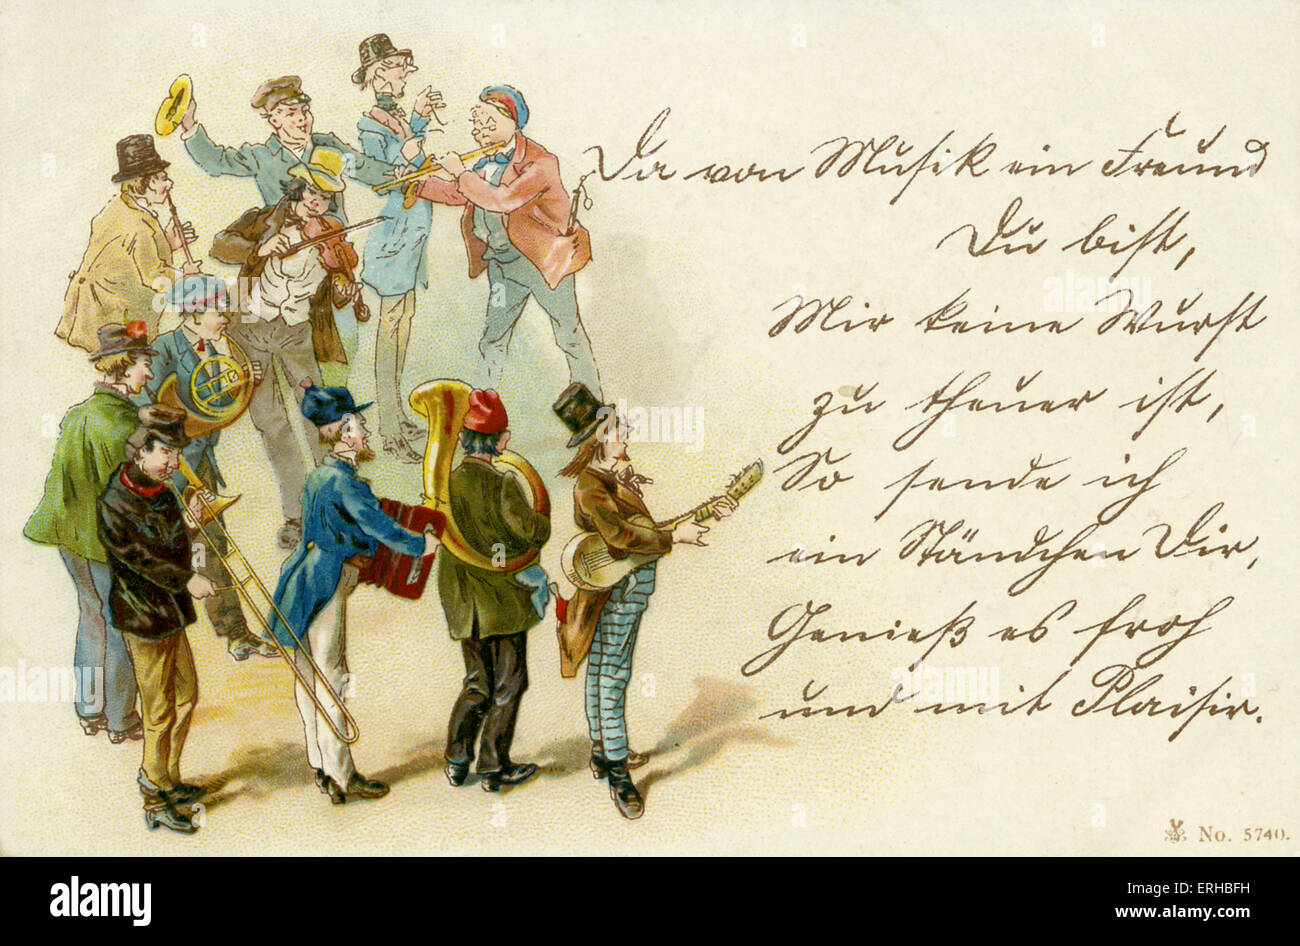 Da von Musik ein Freund
Du bist,
Mir keine Wurst
zu theuer ist,
So sende ich
ein Ständchen Dir,
Genieß es froh
und mit Plaisir.
No. 5740.
alamy
alamy stock photo
ERHBFH
www.alamy.com